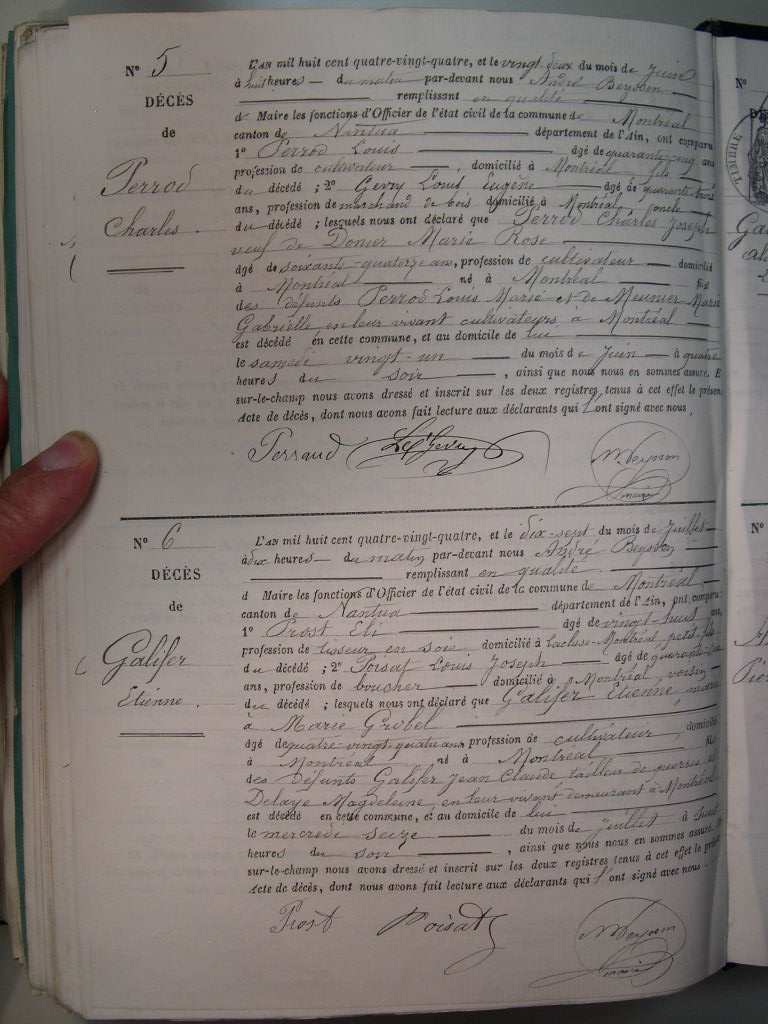 Nº 5
DÉCÈS
de
Perrod
Charles.
L'AN mil huit cent quatre-vingt-quatre, et le vingt-deux du mois de Juin
à huit heures du matin par-devant nous André Beysson
remplissant en qualité
d Maire les fonctions d'Officier de l'état civil de la commune de Montréal
canton de Nantua département de l'Ain, ont comparu
1º Perrod Louis âgé de quarante-cinq ans
profession de cultivateur, domicilié à Montréal fils
du décédé ; 2º Gevry Louis Eugène âgé de quarante-trois
ans, profession de marchand de bois domicilié à Montréal
du décédé ; lesquels nous ont déclaré que Perrod Charles Joseph
veuf de Donier Marie Rose
âgé de soixante-quatorze ans, profession de cultivateur domicilié
à Montréal né à Montréal fils
des défunts Perrod Louis Marie et de Meunier Marie
Gabrielle, en leur vivant cultivateurs à Montréal
est décédé en cette commune, et au domicile de lui
le samedi vingt-un du mois de Juin à quatre
heures du soir, ainsi que nous nous en sommes assuré. E
sur-le-champ nous avons dressé et inscrit sur les deux registres tenus à cet effet le présen
Acte de décès, dont nous avons fait lecture aux déclarants qui l'ont signé avec nous.
Perraud Ls Gevry
maire
Nº 6
DÉCÈS
de
Galifer
Etienne.
L'AN mil huit cent quatre-vingt-quatre, et le dix-sept du mois de Juillet
à dix heures du matin par-devant nous André Beysson
remplissant en qualité
d Maire les fonctions d'Officier de l'état civil de la commune de Montréal
canton de Nantua département de l'Ain, ont comparu
1º Prost Eli âgé de vingt-huit ans,
profession de tisseur en soie domicilié à Lacluse-Montréal petit-fils
du décédé ; 2º Poisat Louis Joseph âgé de quarante
ans, profession de boucher domicilié à Montréal voisin
du décédé ; lesquels nous ont déclaré que Galifer Etienne, mari
à Marie Grobel
âgé de quatre-vingt-quatre ans profession de cultivateur, domicilié
à Montréal né à Montréal fils
des défunts Galifer Jean Claude tailleur de pierres et
Delaye Magdeleine, en leur vivant demeurant à Montréal
est décédé en cette commune, et au domicile de lui
le mercredi seize du mois de Juillet à huit
heures du soir, ainsi que nous nous en sommes assuré. E
sur-le-champ nous avons dressé et inscrit sur les deux registres tenus à cet effet le présen
Acte de décès, dont nous avons fait lecture aux déclarants qui l'ont signé avec nous.
Prost Poisat
maire
Nº
TIMBRE
Nº